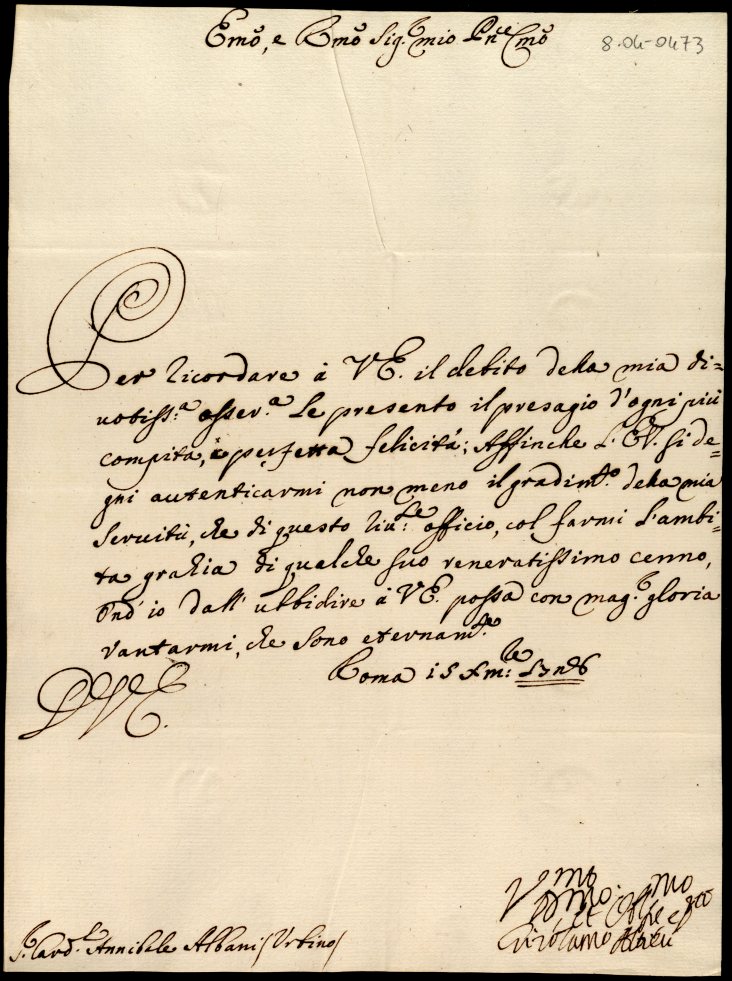 Emo, e Rmo Sig.r mio Pne Cmo
8-04-0473
Per ricordare à VE. il debito della mia di=
uotiss.a osser.a Le presento il presagio d'ogni più
compita, e perfetta felicità; Affinche L'EV. si de=
gni autenticarmi non meno il gradim.to della mia
Seruitù, che di questo riu.le officio, col farmi l'ambi=
ta grazia di qualche suo veneratissimo cenno,
ond' io dall' ubbidire à VE. possa con mag.r gloria
vantarmi, che sono eternam.te
DVE.
Roma 15
S. Card.l Annibale Albani /Urbino/
Vmo
Girolamo